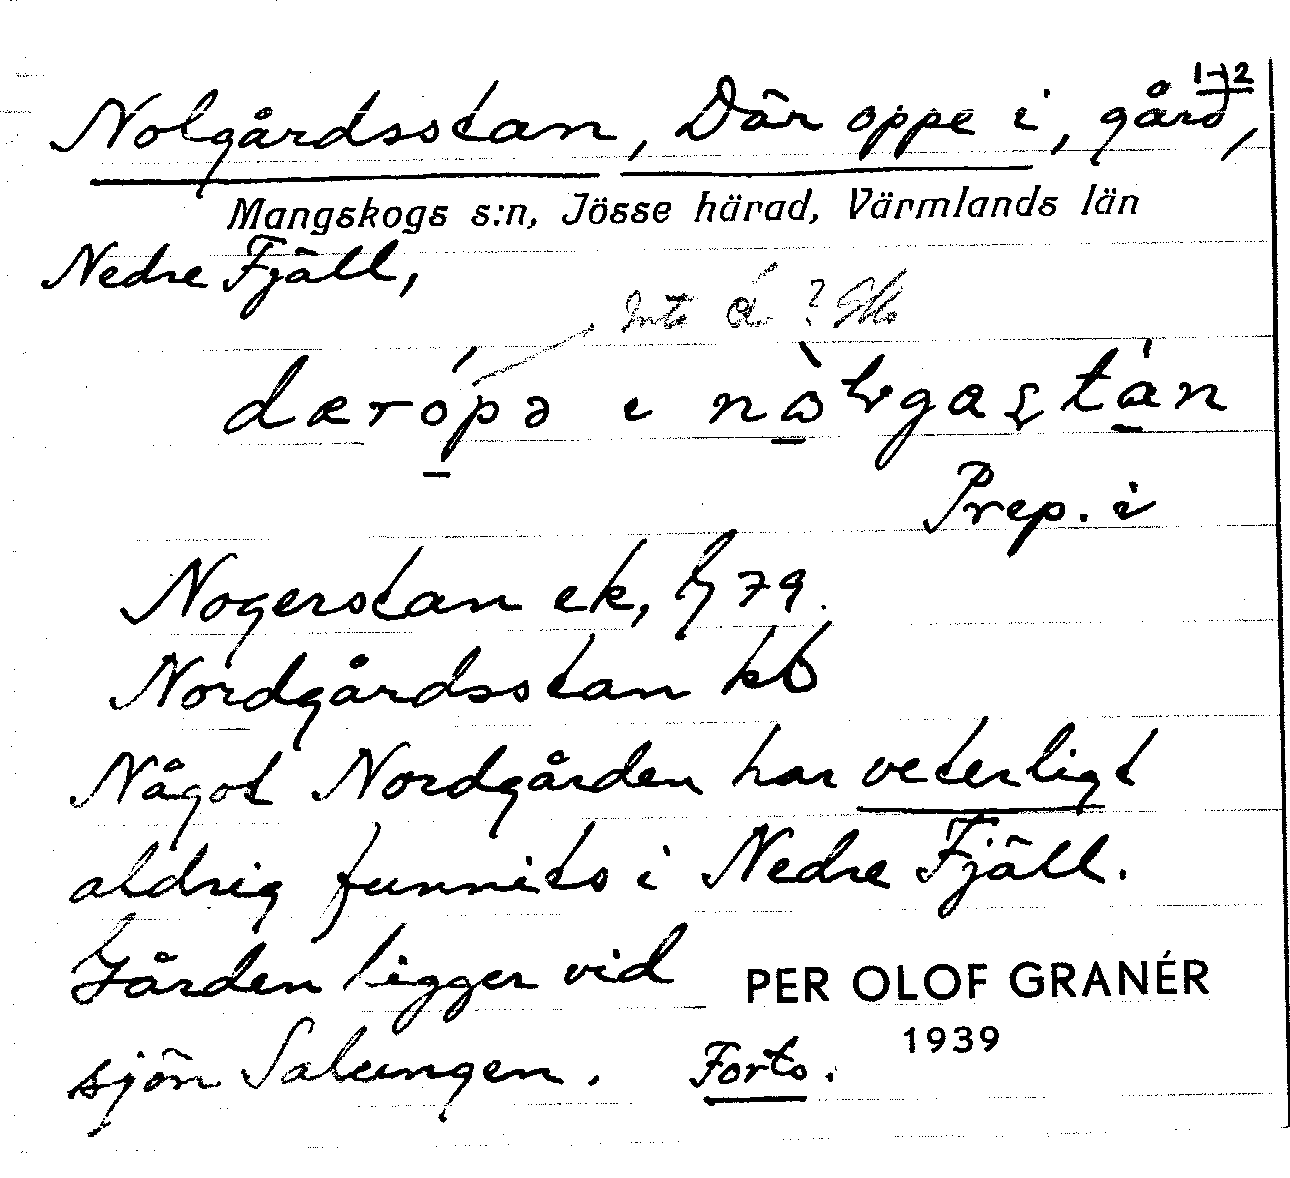 1-2
Nolgårdsstan, Där oppe i, gård,
Mangskogs s:n, Jösse härad, Värmlands län
Nedre Fjäll,
Inte á ?
dæropə ɩ
Prep. i
Nogerstan ek, 79.
Nordgårdsstan kb
Något Nordgården har veterligt
aldrig funnits i Nedre Fjäll.
Gården ligger vid
sjön Salungen. Forts.
PER OLOF GRANÉR
1939